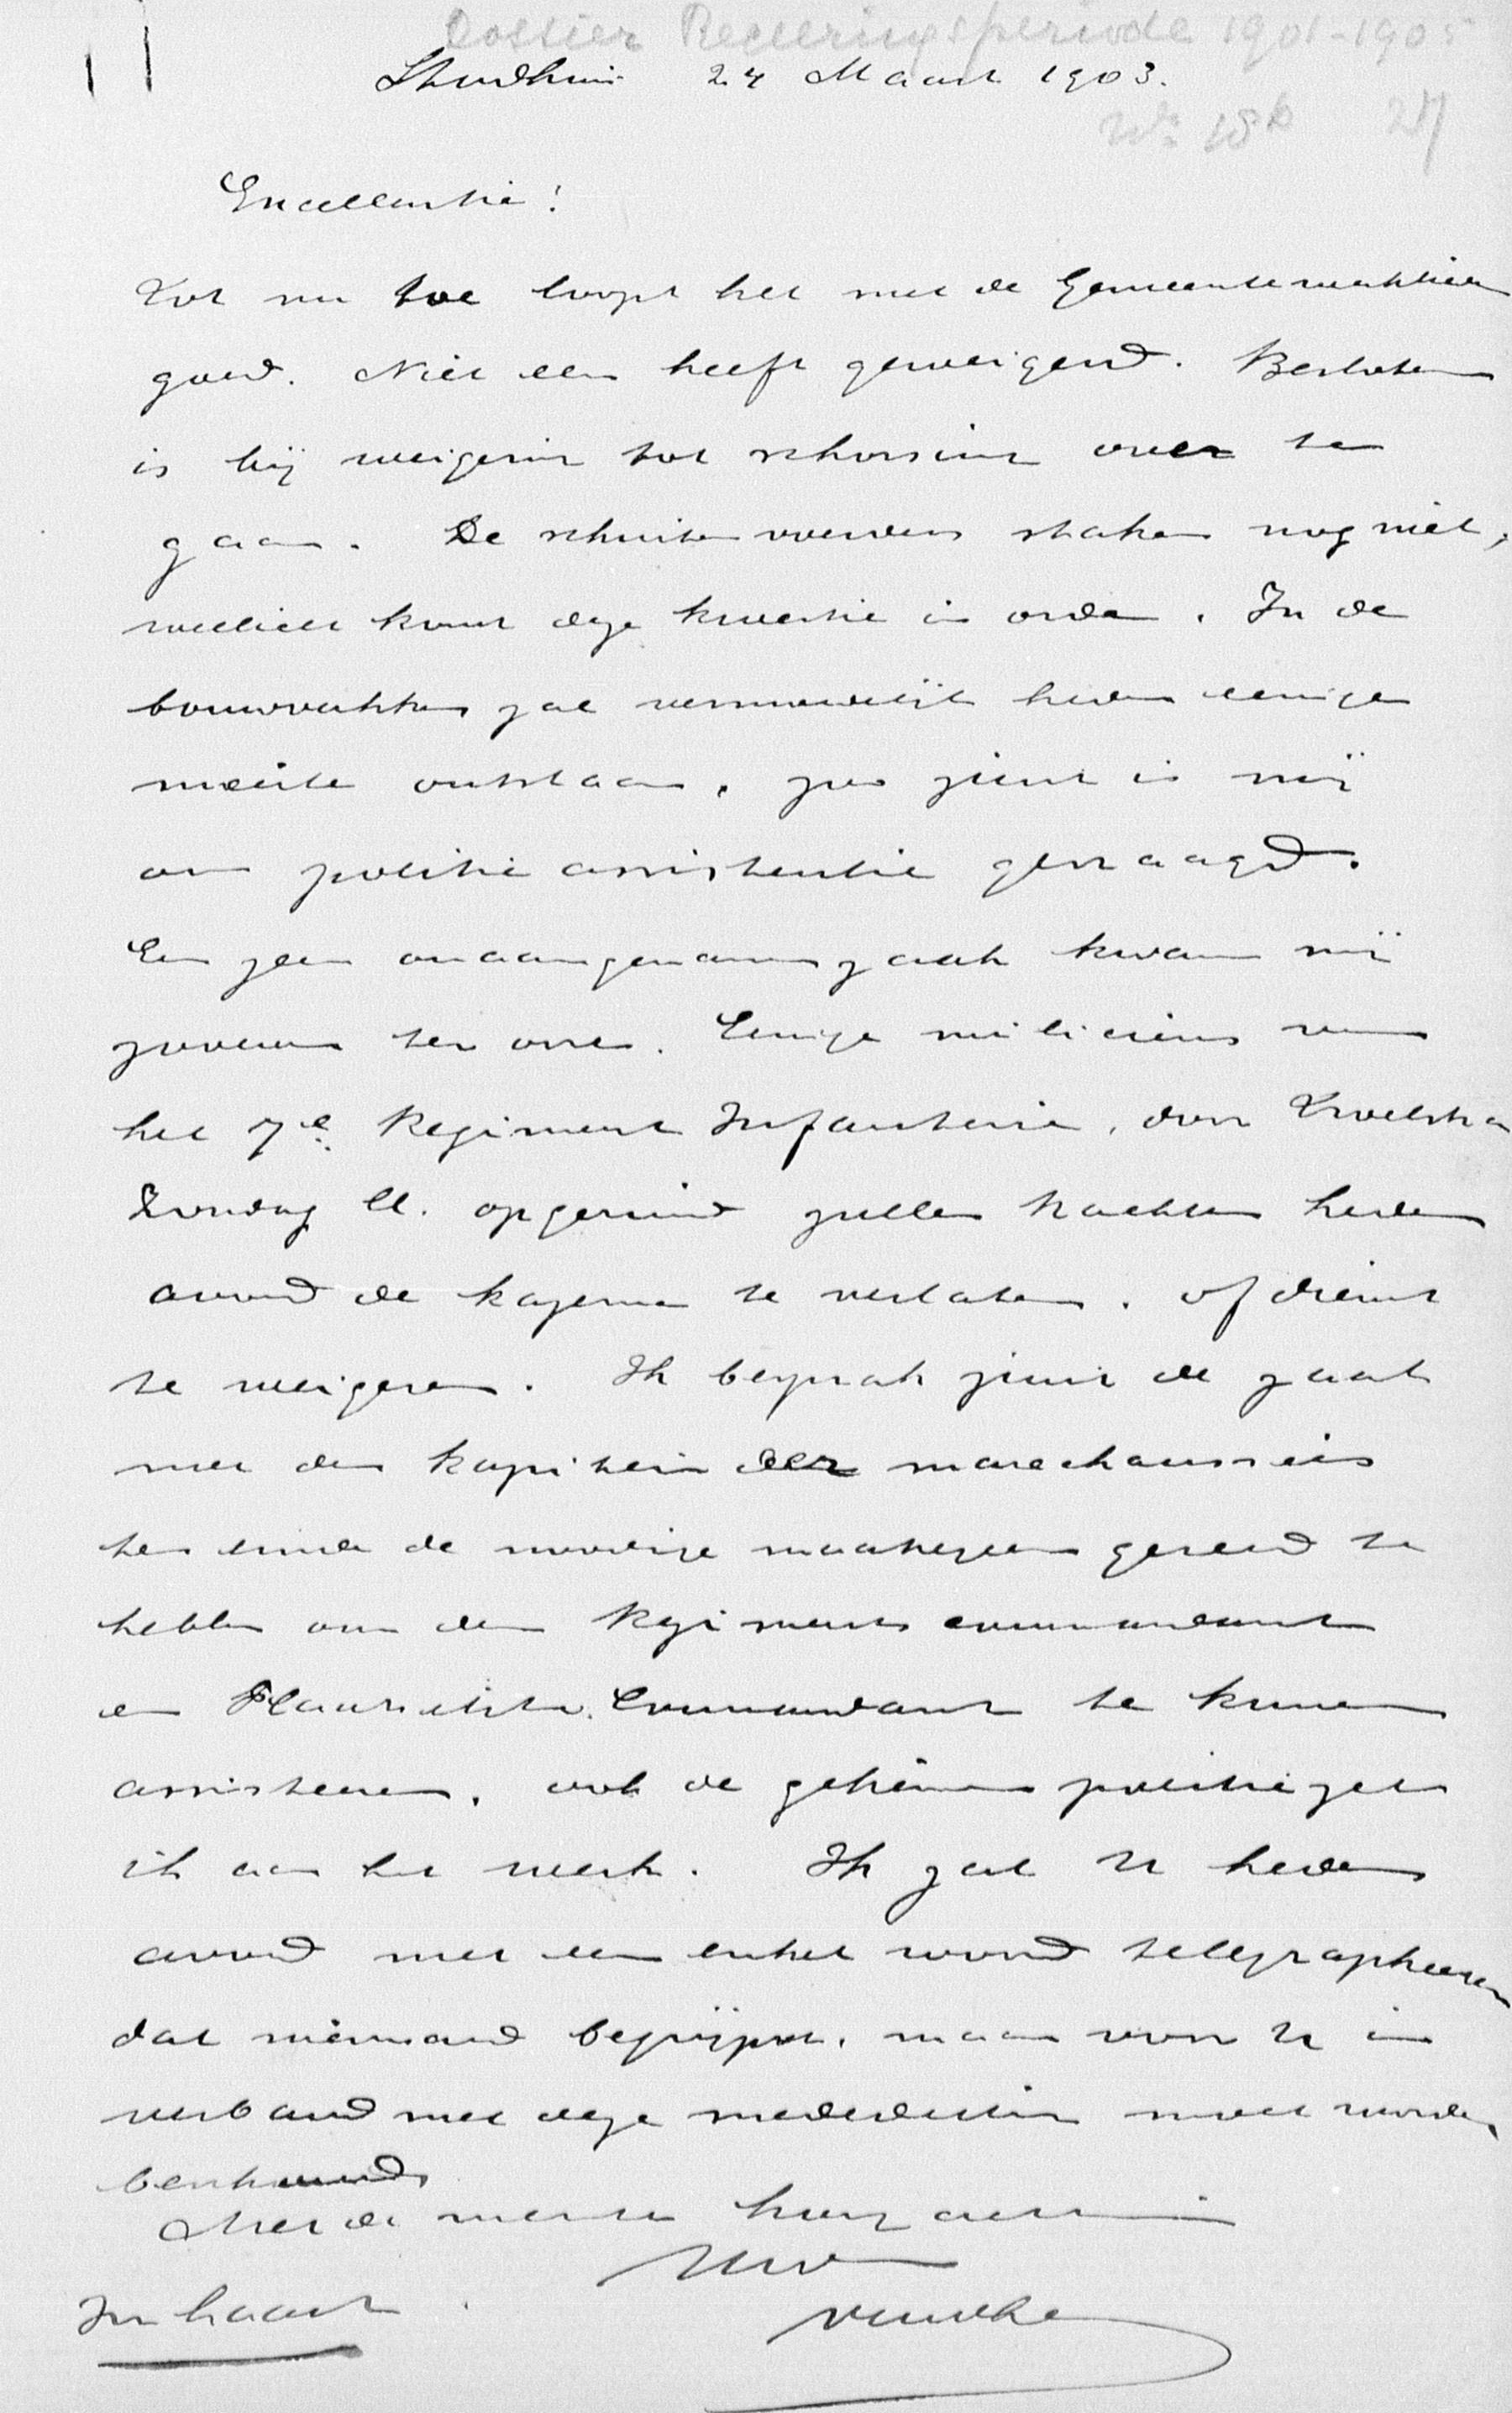 Dossier Regeeringsperiode 1901-1905
Stadhuis 24 Maart 1903.
No 18b 27
Excellentie!
Tot nu toe loopt het met de Gemeentewerklieden
goed. Niet een heeft geweigerd. Besloten
is bij weigering tot schorsing over te
gaan. De schuitenvoerders staken nog niet,
wellicht komt deze kwestie in orde. In de
bouwvakken zal vermoedelijk heden eenige
moeite ontstaan, zoo juist is mij
om politie assistentie gevraagd.
Een zeer onaangename zaak kwam mij
zooeven ter oore. Eenige miliciens van
het 7e Regiment Infanterie, door Troelstra
Zondag ll. opgeruid zullen trachten heden
avond de kazerne te verlaten, of dienst
te weigeren. Ik besprak juist de zaak
met den kapitein der marechaussées
ten einde de noodige maatregelen gereed te
hebben om den Regiments commandant
en Plaatselijken Commandant te kunnen
assisteeren, ook de geheime politie zet
ik aan het werk. Ik zal U heden
avond met een enkel woord telegrapheeren
dat niemand begrijpt, maar voor U in
verband met deze mededeeling moet worden
beschouwd.
Met de meeste hoogachting
Uw
In haast